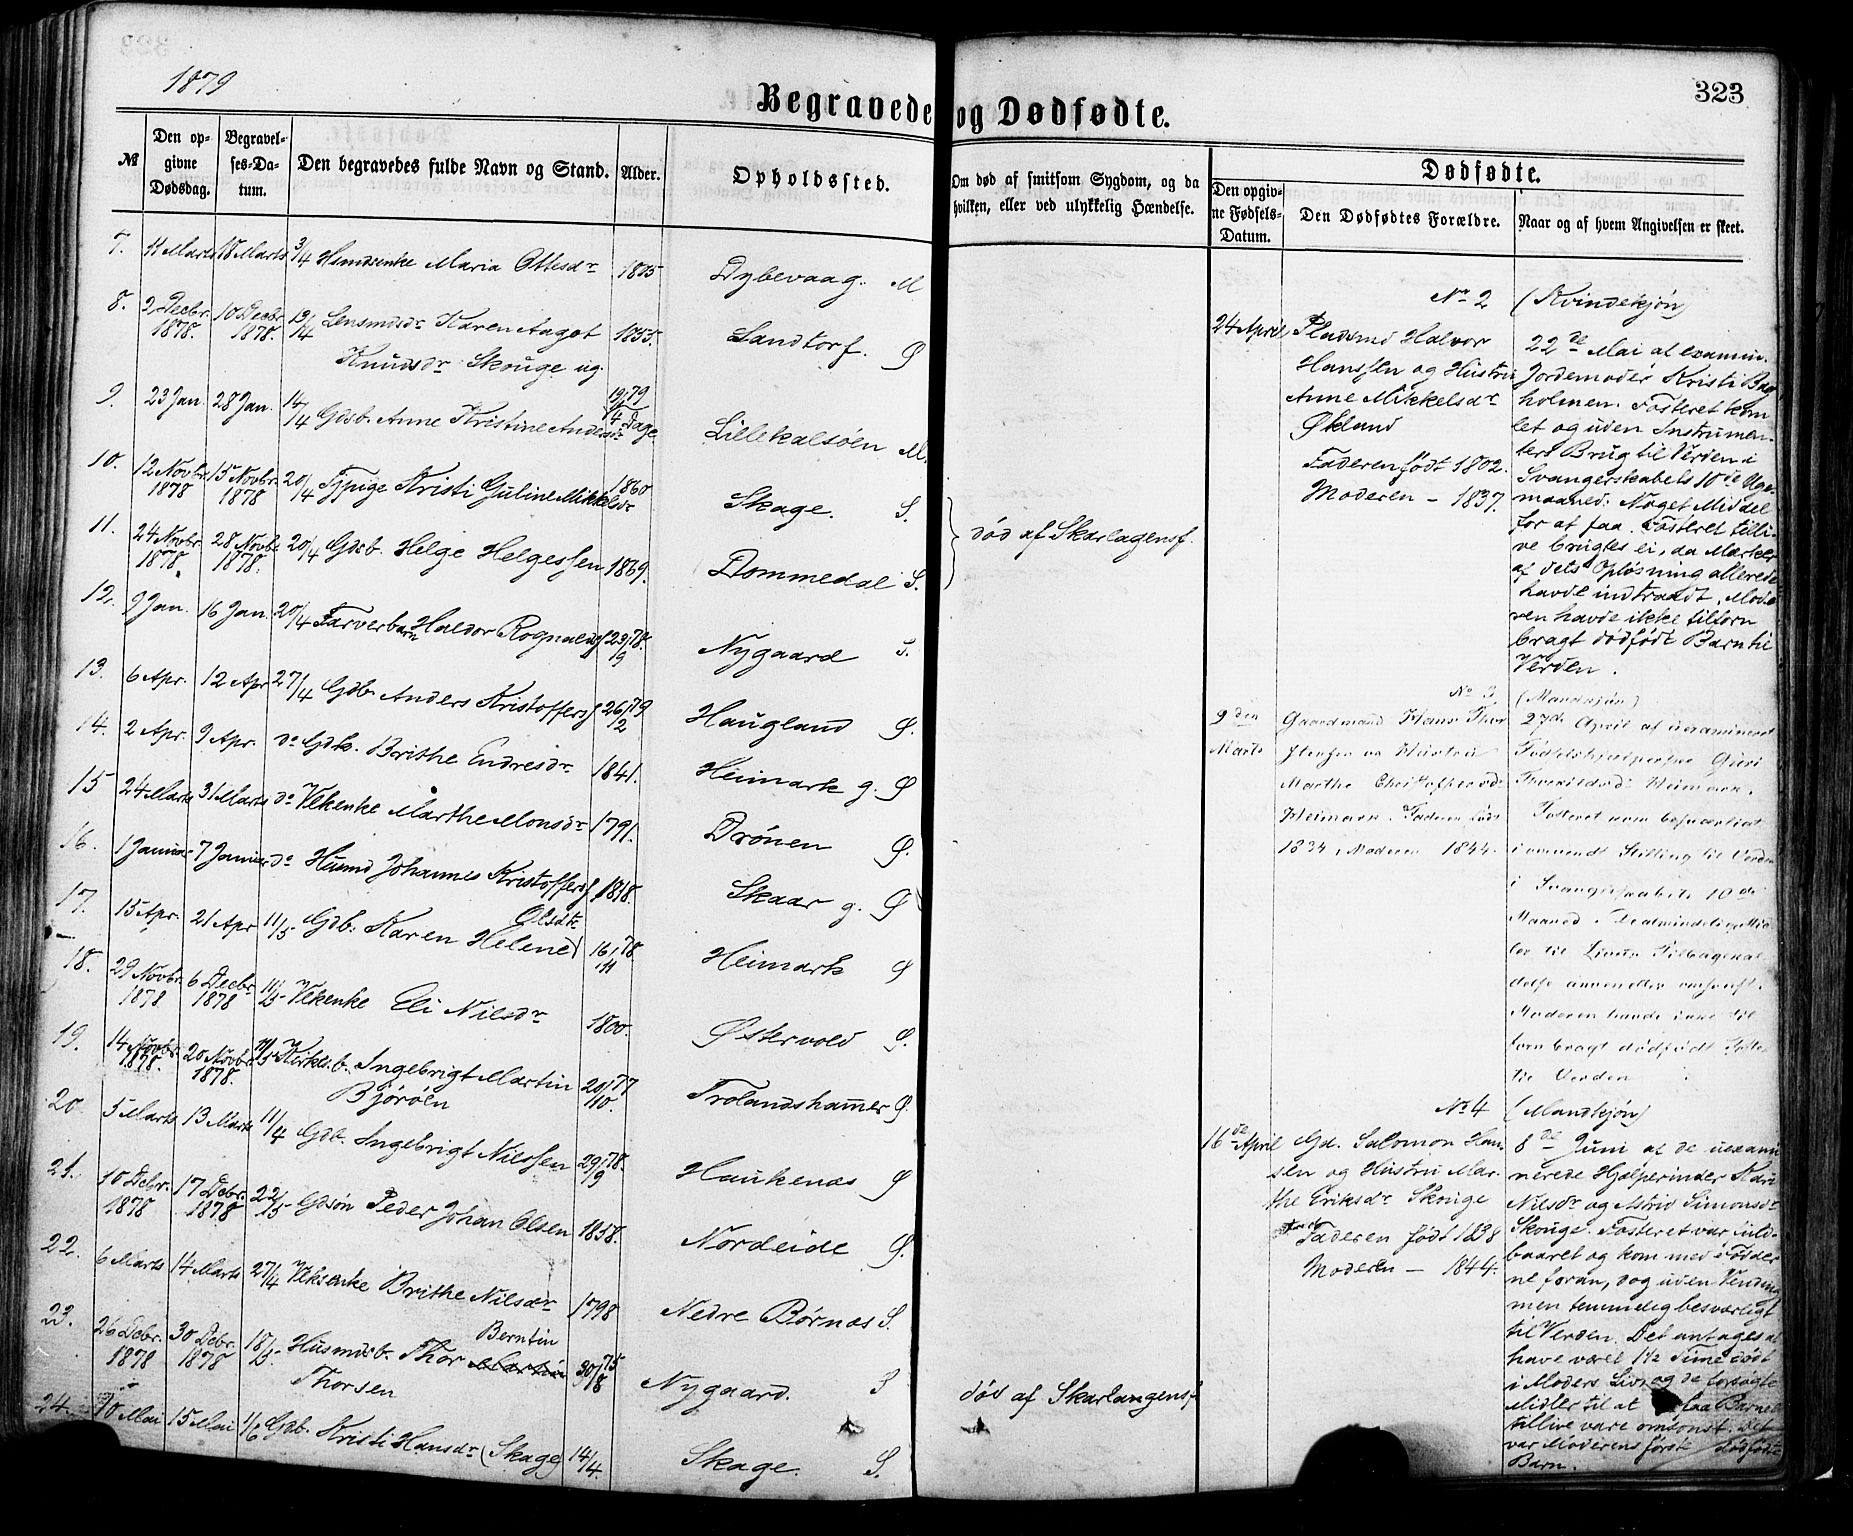 1879
Begravede og Dødfødte.
323
№
Den opgivne Dødsdag.
Begravelses-Datum.
Den begravedes fulde Navn og Stand.
Alder.
Opholdssted.
Om død af smitsom Sygdom, og da hvilken, eller ved ulykkelig Hændelse.
Dødfødte.
Den opgivne Fødsels-Datum.
Den Dødfødtes Forældre.
Naar og af hvem Angivelsen er skeet.
7. 11 Marts 18 Marts 3/4 Maria Ottesdr 1805 Dybevaag. M
8. 2 Decbr. 1878. 10 Decbr. 1878. 13/14 Lensmdsdr Karen Aagot
Knudsdr Skouge ug. 1855. Landtorf. Ø
9. 23 Jan. 28 Jan. 14/4 Gdsb. Anne Kristine Andersdr 19/1 79 4 Dage Lillekalsøen M.
10. 12 Novbr. 1878 15 Novbr. 1878 20/4 Tjpige Kristi Guline Mikkelsdr 1860 Skage. S.
11. 24 Novbr. 1878. 28 Novbr. 1878. 20/4 Gdsb. Helge Helgessen 1869. Dommedal S.
død af Skarlagensf.
12. 9 Jan. 16 Jan. 20/4 Farverbarn Haldor Rognalds 23/9 78. Nygaard S.
13. 6 Apr. 12 Apr 27/4 Gdb. Anders Kristoffersf 26/2 79 Haugland Ø.
14. 2 Apr. 9 Apr. do Gdk. Brithe Endresdr 1841. Heimark g. Ø
15 24 Marts 31 Marts do Vekenke Marthe Monsdr 1791. Drønen Ø.
16. 1 Januar 7 Januar do Husmd Johannes Kristoffersf 1818. Skaar g. Ø
17. 15 Apr. 21 Apr 11/5 Gdb. Karen Helene Olsdtr 16/11 78. Heimark Ø
18. 29 Novbr. 1878 6 Decbr. 1878 11/5 Vekenke Eli Nilsdr 1800. Østervold Ø.
19. 14 Novbr. 1878. 20 Novbr. 1878. 11/5 Kirkes.b. Ingebrigt Martin
Bjørøen 20/10 77 Trolandshamer Ø.
20. 5 Marts 13 Marts 11/4 Gdb. Ingebrigt Nilssen 29/9 78. Haukenæs Ø
21. 10 Debr. 1878 17 Debr. 1878 22/5 Gdsøn Peder Johan Olsen 1858. Nordeide Ø.
22. 6 Marts 14 Marts 27/4 Veksenke Brithe Nilsdr 1798 Nedre Børnæs S.
23. 26 Debr. 1878 30 Debr. 1878 18/5 Husmdsb. Thor Berntin
Thorsen 30/8 75 Nygaard. S død af Skarlangensf
24. 10 Mai 15 Mai 1/6 Gdb. Kristi Hansdr (Skage) 14/4 Skage. S.
No 2 (Kvindekjøn)
24 April
Pladsmd Halvor
Hanssen og Hustru
Anne Mikkelsdr
Økland
Faderen født 1802.
Moderen – 1837.
22de Mai af examin.
Jordemoder Kristi Bag-
holmen. Fosteret kom
let og uden Instrumen-
ters Brug til Verden i
Svangerskabets 10de
maaned. Noget Middel
for at faa Fosteret tilli-
ve brugtes ei, da Mærker
af dets Opløsning allerede
havde indtraadt. Mode-
ren havde ikke tilforn
bragt dødfødt Barn til
Verden.
No 3 (Mandkjøn)
9den Marts
Gaardmand Hans Thor
stensen og Hustru
Marthe Christophersdr
Heimark. Faderen født
1834, Moderen 1844.
27de April af uexamineret
Fødselshjælperske Guri
Heimark.
Fosteret kom besværligt
Stilling til Verden
i Svangerskabets 10de
Maaned.
Moderen havde ikke til
forn bragt dødfødt Foster
til Verden
No 4 (Mandkjøn)
16de April
Gd. Salomon Han-
sen og Hustru Mar-
the Eriksdr Skouge
Faderen født 1838
Moderen – 1844.
8de Juni af de uexami
nerede Hjælperinder Kari
Nilsdr og Astrid Simonsdr
Skouge. Fosteret var fuld-
baaret og kom med Fødder
ne foran, dog uden Vending
men temmelig besværligt
til Verden. Det antages at
have været 1½ Time dødt
i Moders Liv, og de forsøgte
Midler til at faa Barnet
tillive vare omsonst. Det
var Moderens først dødfødte
Barn.